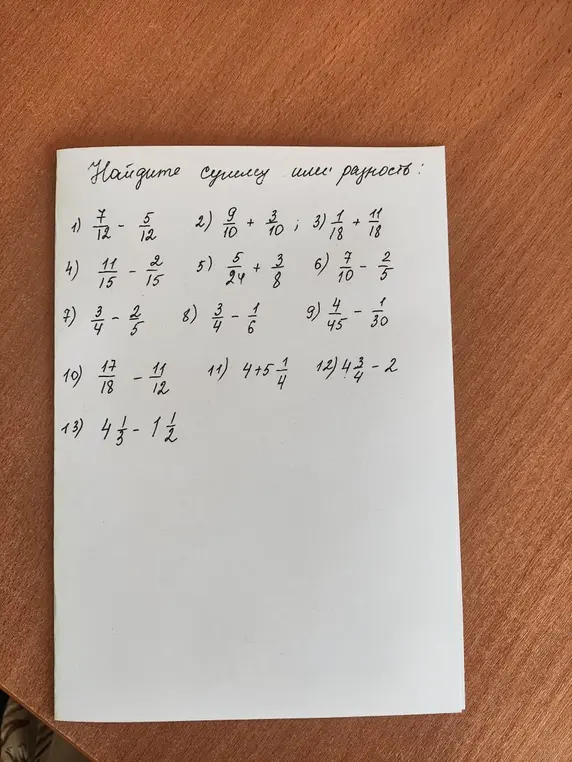 Найдите сумму или разность:
1) 7/12 - 5/12 2) 9/10 + 3/10; 3) 1/18 + 11/18
4) 11/15 - 2/15 5) 5/24 + 3/8 6) 7/10 - 2/5
7) 3/4 - 2/5 8) 3/4 - 1/6 9) 4/45 - 1/30
10) 17/18 - 11/12 11) 4+5 1/4 12) 4 3/4 - 2
13) 4 1/3 - 1 1/2